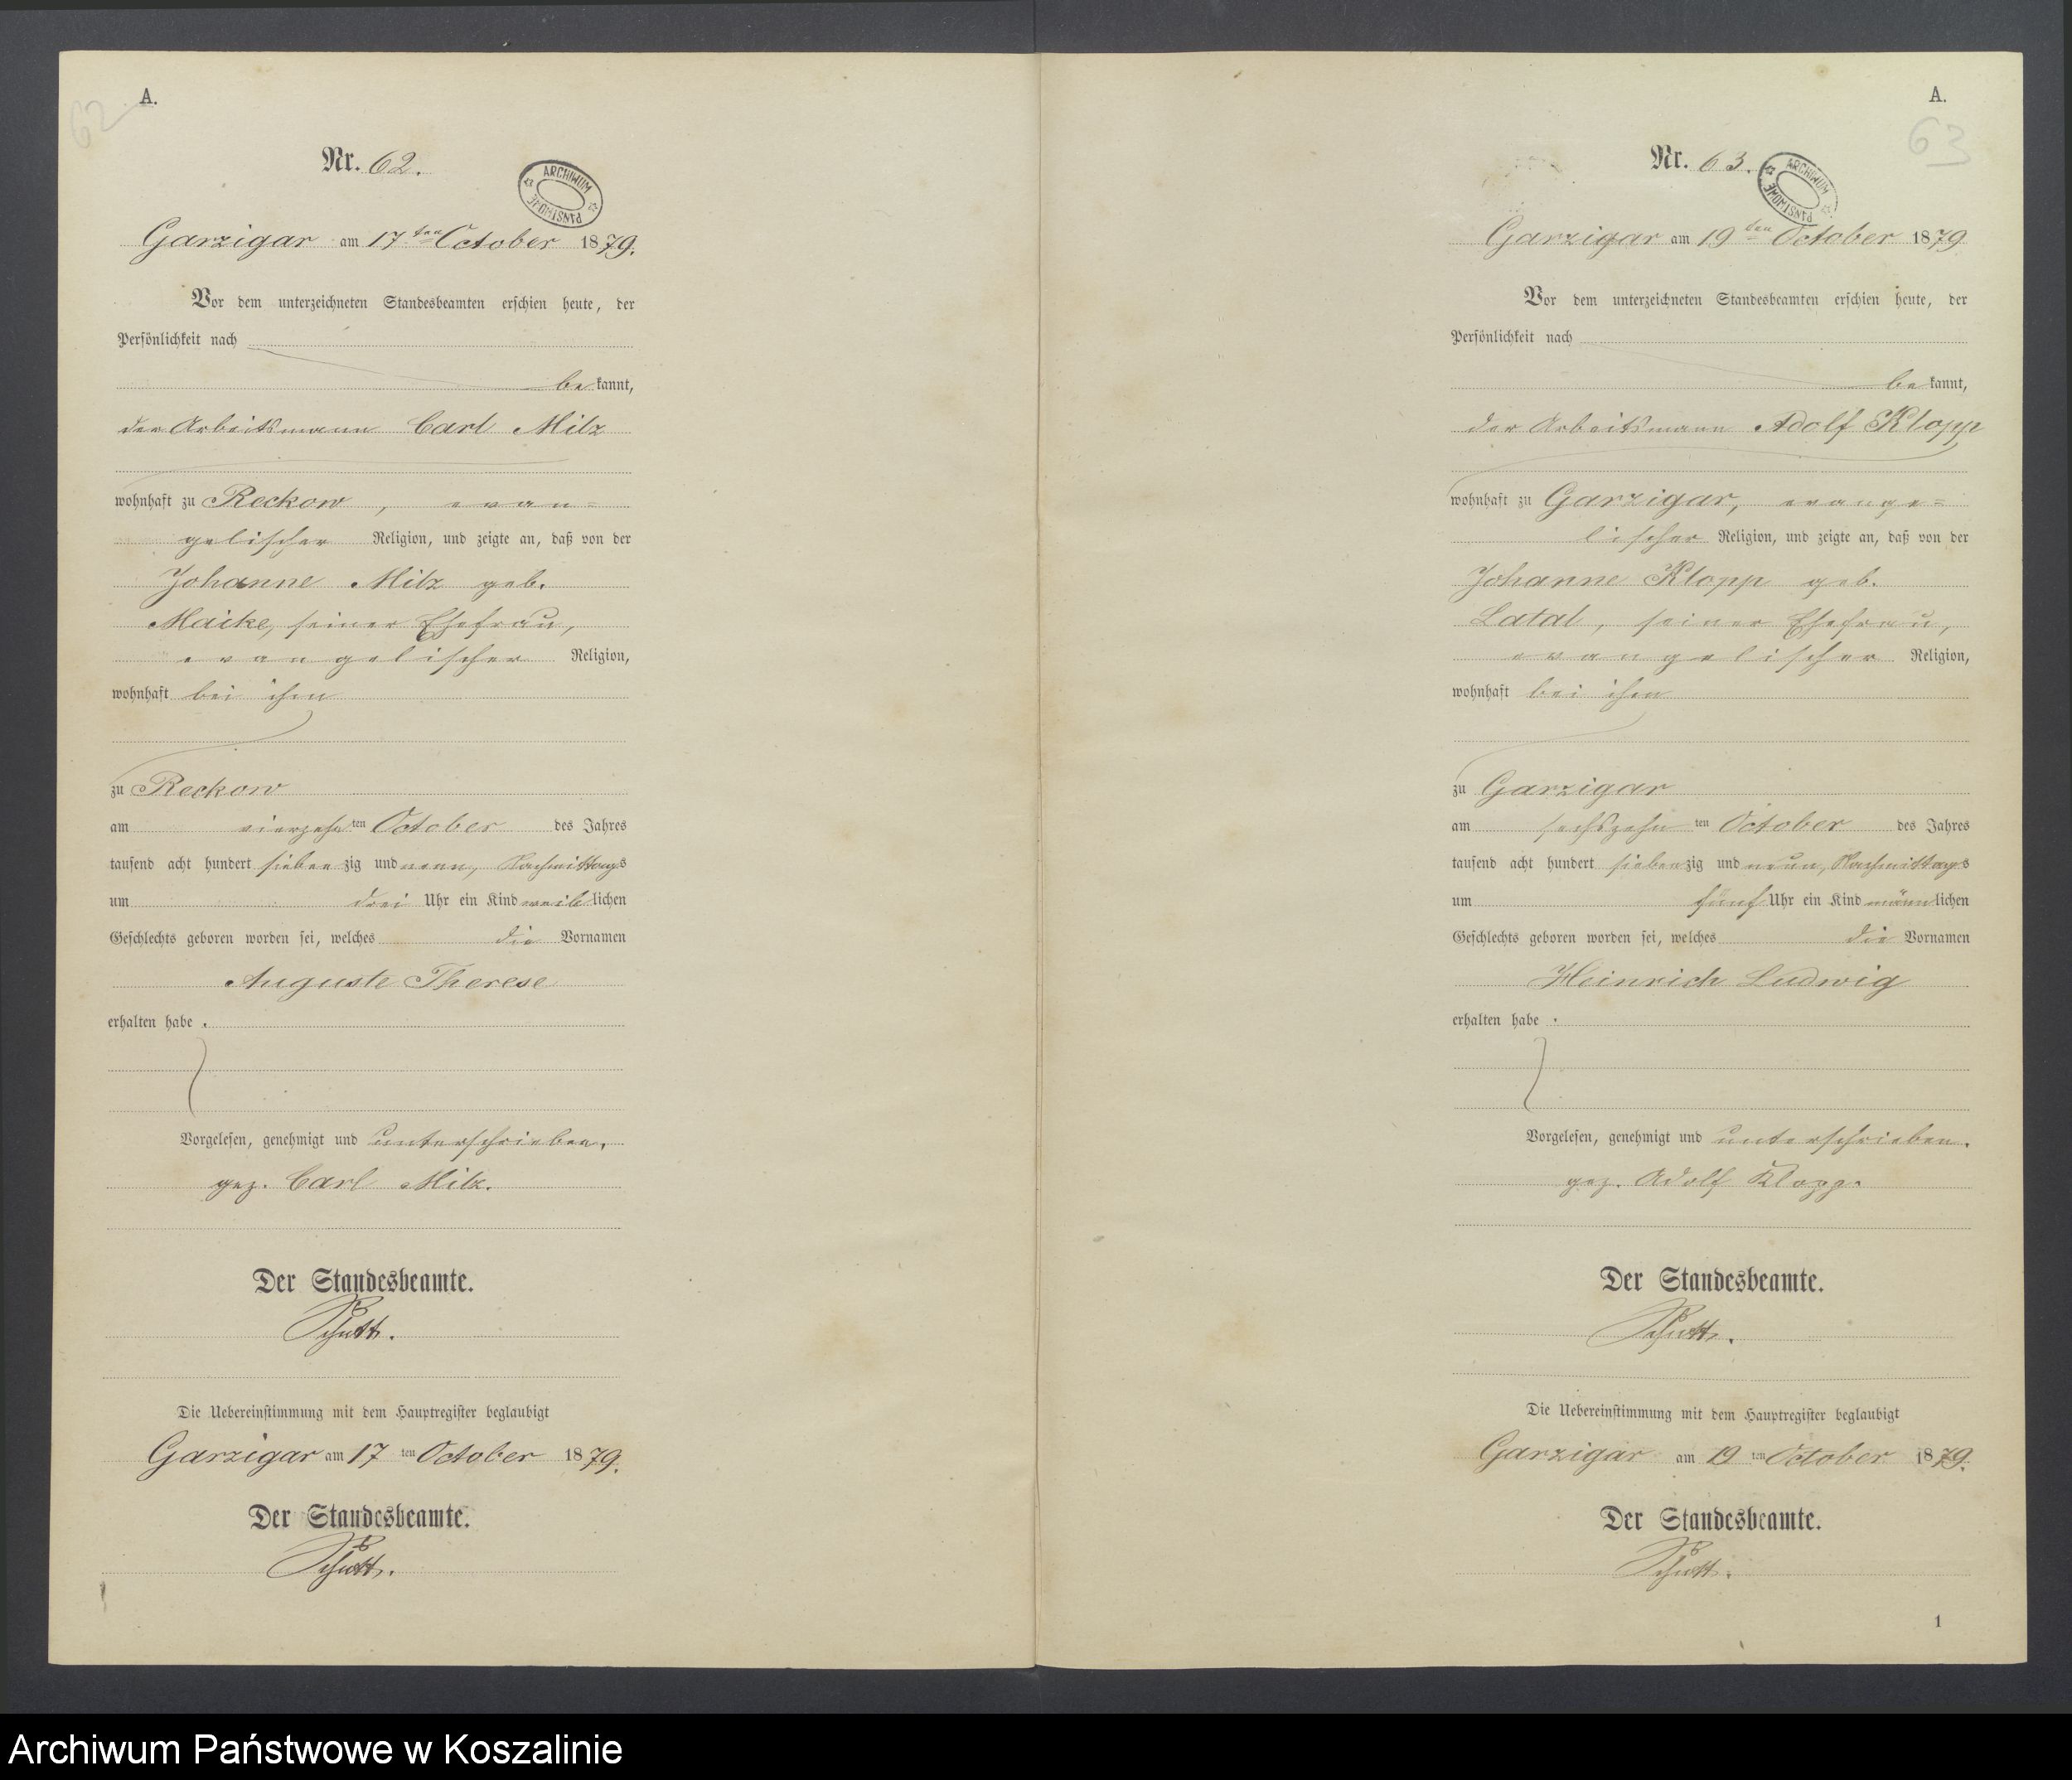 A.
62
Nr. 62.
ARCHIWUM PAŃSTWOWE
Garzigar am 17ten October 1879.
Vor dem unterzeichneten Standesbeamten erschien heute, der
Persönlichkeit nach
bekannt,
der Arbeitsmann Carl Milz
wohnhaft zu Reckow, evan=
gelischer Religion, und zeigte an, daß von der
Johanne Milz geb.
Maike, seiner Ehefrau,
evangelischer Religion,
wohnhaft bei ihm
zu Reckow
am vierzehnten October des Jahres
tausend acht hundert siebenzig und neun, Nachmittags
um drei Uhr ein Kind weiblichen
Geschlechts geboren worden sei, welches die Vornamen
Auguste Therese
erhalten habe.
Vorgelesen, genehmigt und unterschrieben.
gez. Carl Milz.
Der Standesbeamte.
Schutt.
Die Uebereinstimmung mit dem Hauptregister beglaubigt
Garzigar am 17ten October 1879.
Der Standesbeamte.
Schutt.
A.
63
Nr. 63.
ARCHIWUM PAŃSTWOWE
Garzigar am 19ten October 1879
Vor dem unterzeichneten Standesbeamten erschien heute, der
Persönlichkeit nach
bekannt,
der Arbeitsmann Adolf Klopp
wohnhaft zu Garzigar, evange=
lischer Religion, und zeigte an, daß von der
Johanne Klopp geb.
Latal, seiner Ehefrau,
evangelischer Religion,
wohnhaft bei ihm
zu Garzigar
am sechszehnten October des Jahres
tausend acht hundert siebenzig und neun, Nachmittags
um fünf Uhr ein Kind männlichen
Geschlechts geboren worden sei, welches die Vornamen
Heinrich Ludwig
erhalten habe.
Vorgelesen, genehmigt und unterschrieben.
gez. Adolf Klopp.
Der Standesbeamte.
Schutt.
Die Uebereinstimmung mit dem Hauptregister beglaubigt
Garzigar am 19ten October 1879.
Der Standesbeamte.
Schutt.
1
Archiwum Państwowe w Koszalinie